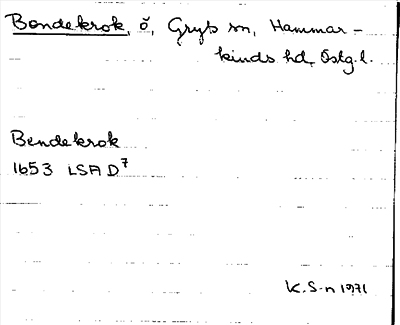 Bondekrok, ö, Gryts sn, Hammar-
kinds hd, Östg.l.
Bendekrok
1653 LSA D7
K.S-n 1971